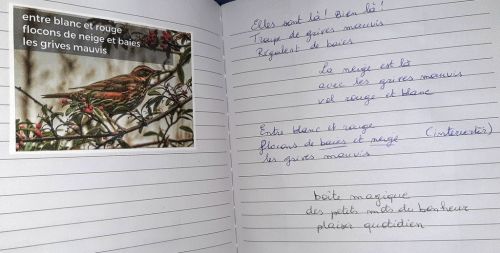 entre blanc et rouge
flocons de neige et baies
les grives mauvis
Elles sont là ! Bien là !
Troupe de grives mauvis
Régulent de baies
La neige est là
avec les grives mauvis
vol rouge et blanc
Entre blanc et rouge
flocons de baies et neige (intervertir)
les grives mauvis
boîte magique
des petits mots du bonheur
plaisir quotidien